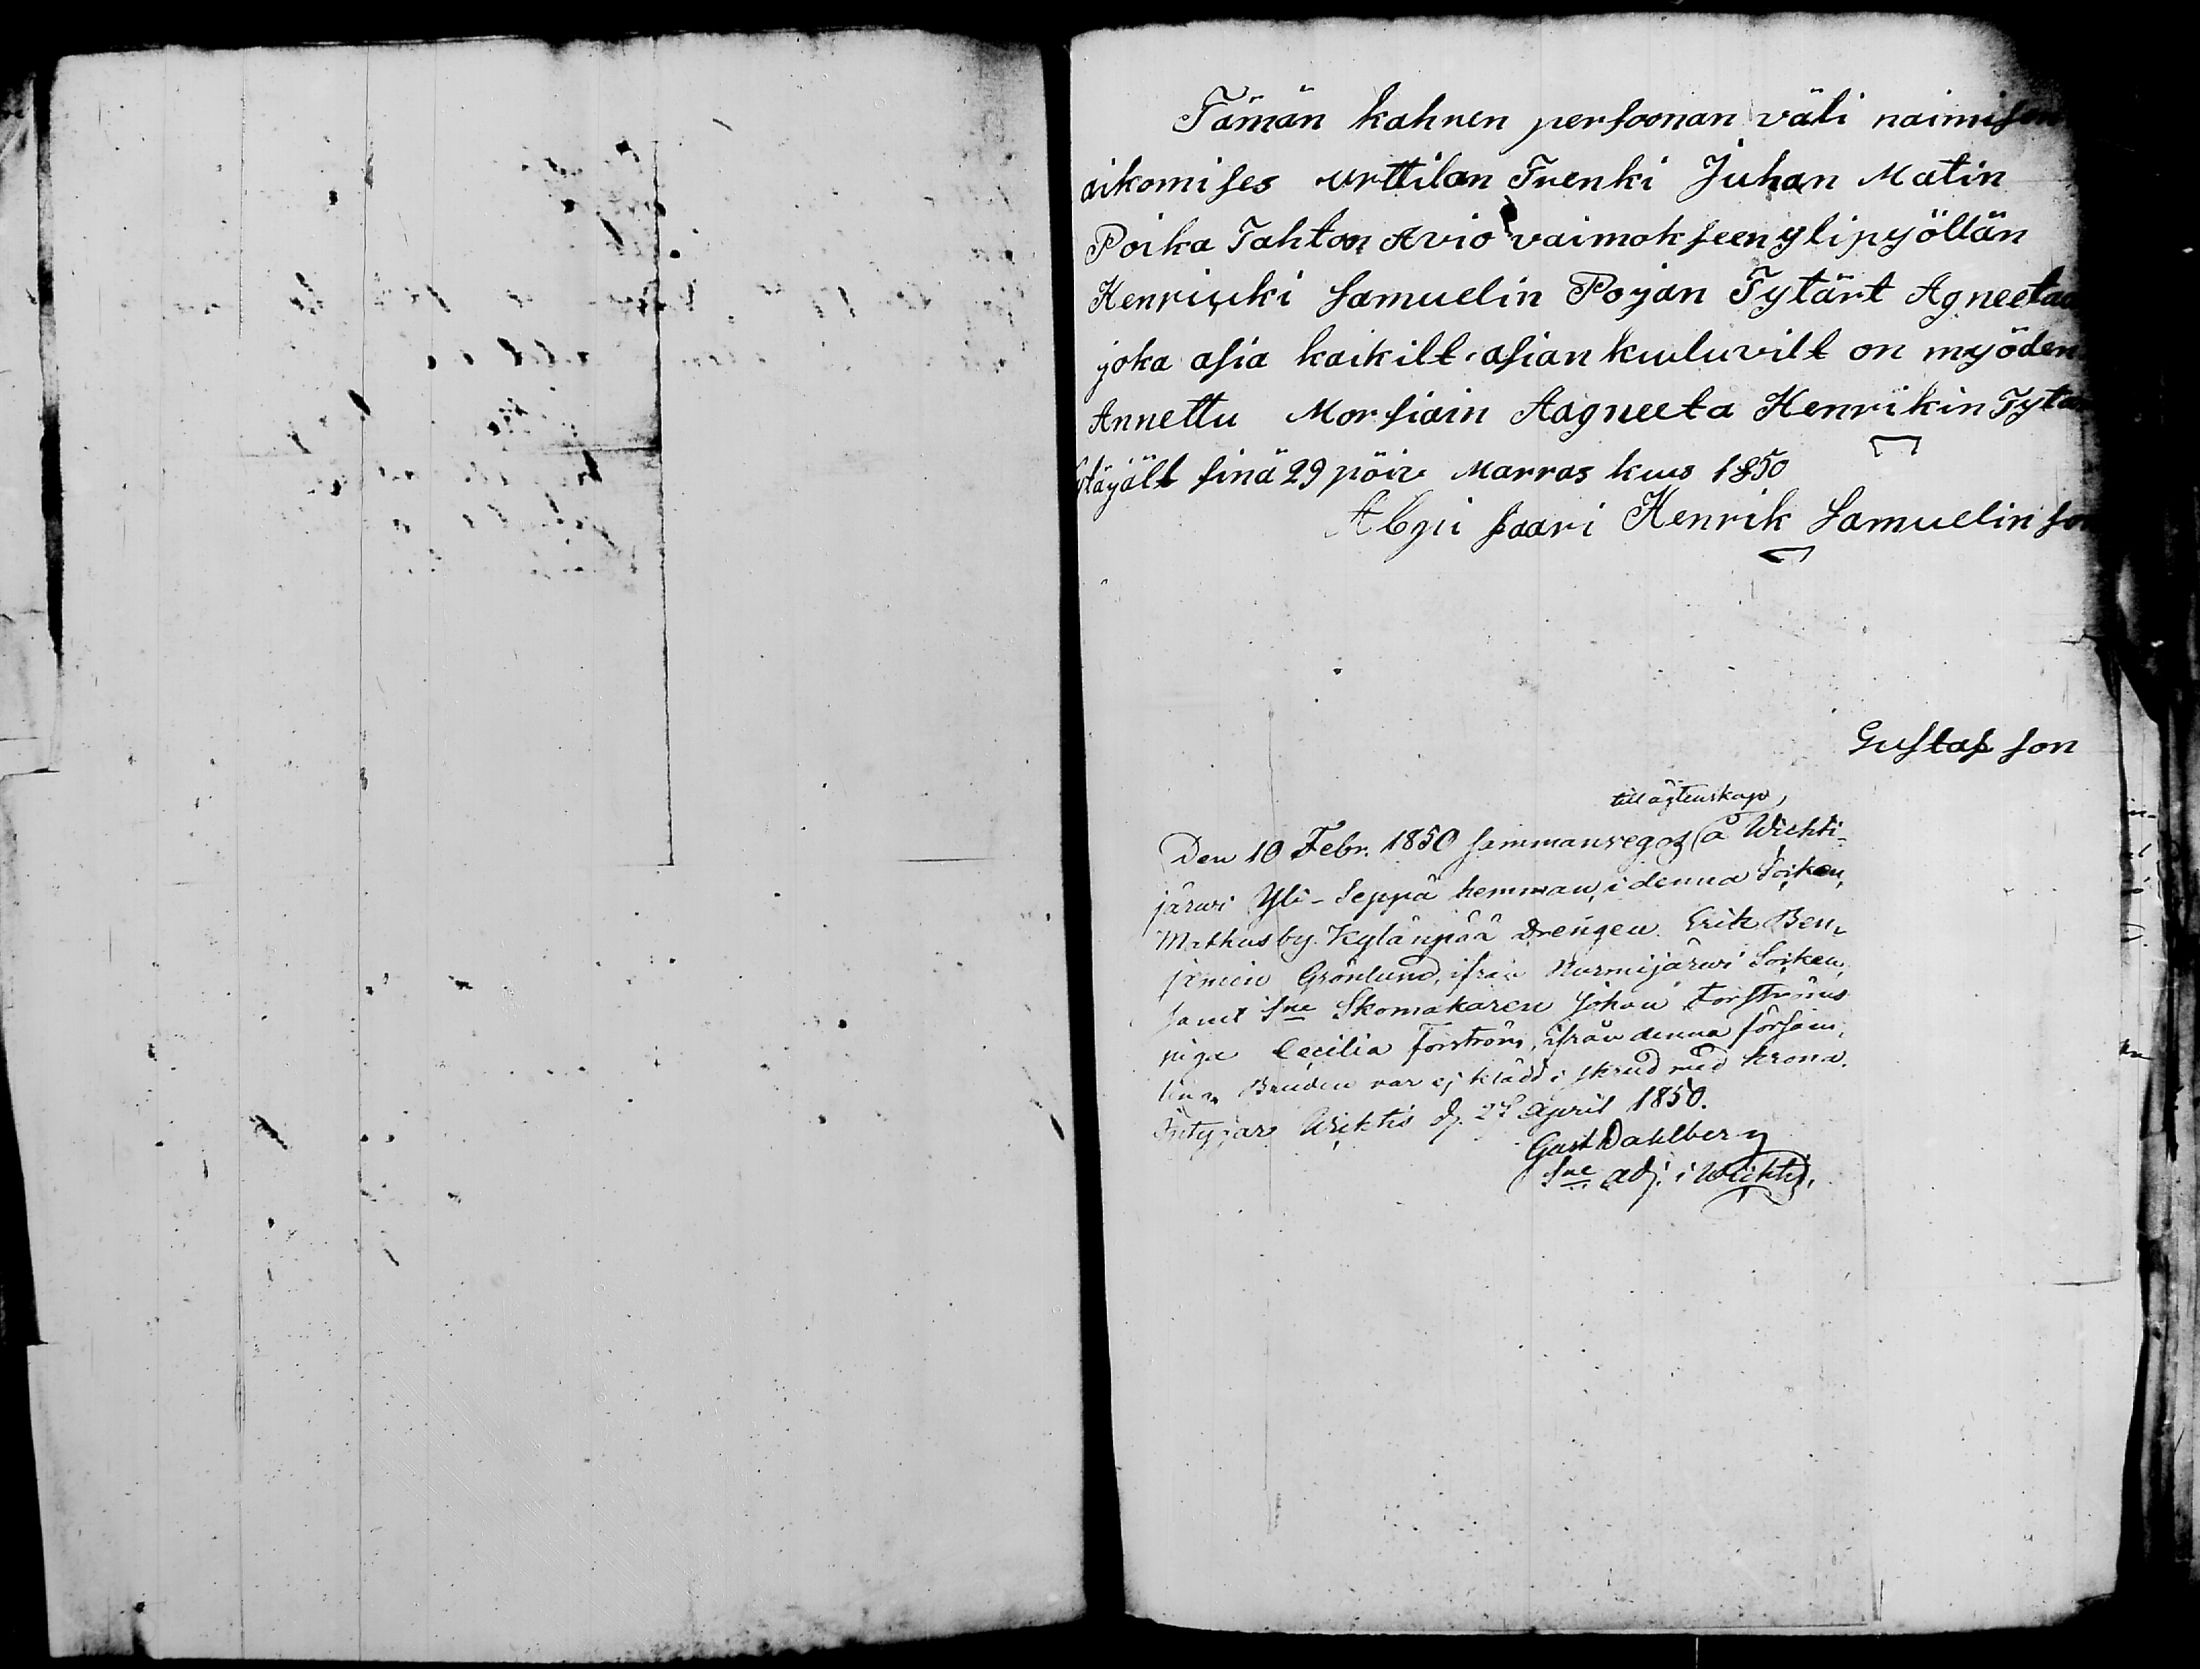 Tämän kahnen persoonan väli naimisen
aikomises urttilan Trenki Juhan Matin
Poika Tahton Avio vaimokseen ylipyöllän
Henriuki Samuelin Pojan Tytärt Agneetaa
joka asia kaikilt asian kuuluvilt on myöden
Annettu Morsiain Aagneeta Henrikin Tytä
ytäyält sinä 29 pöiv Marras kuus 1850
Saari Henrik Samuelin son
Gustafsson
till ägtenskap,
Den 10 Febr. 1850 sammanvegos å Wichti-
järwi Yli-Seppä hemman, i denna Soken,
by Kylänpää Drengen Erik Ben-
jamin Grönlund, ifrån Nurmijärwi Soken,
samt Sne Skomakaren Johan Forströms
piga Cecilia Forström, ifrån denna försam-
lin. Bruden var ej klädd i skrud med krona.
Intygar Wichtis d. 27 April 1850.
Gust Dahlberg
Sne adj. i Wichtis.